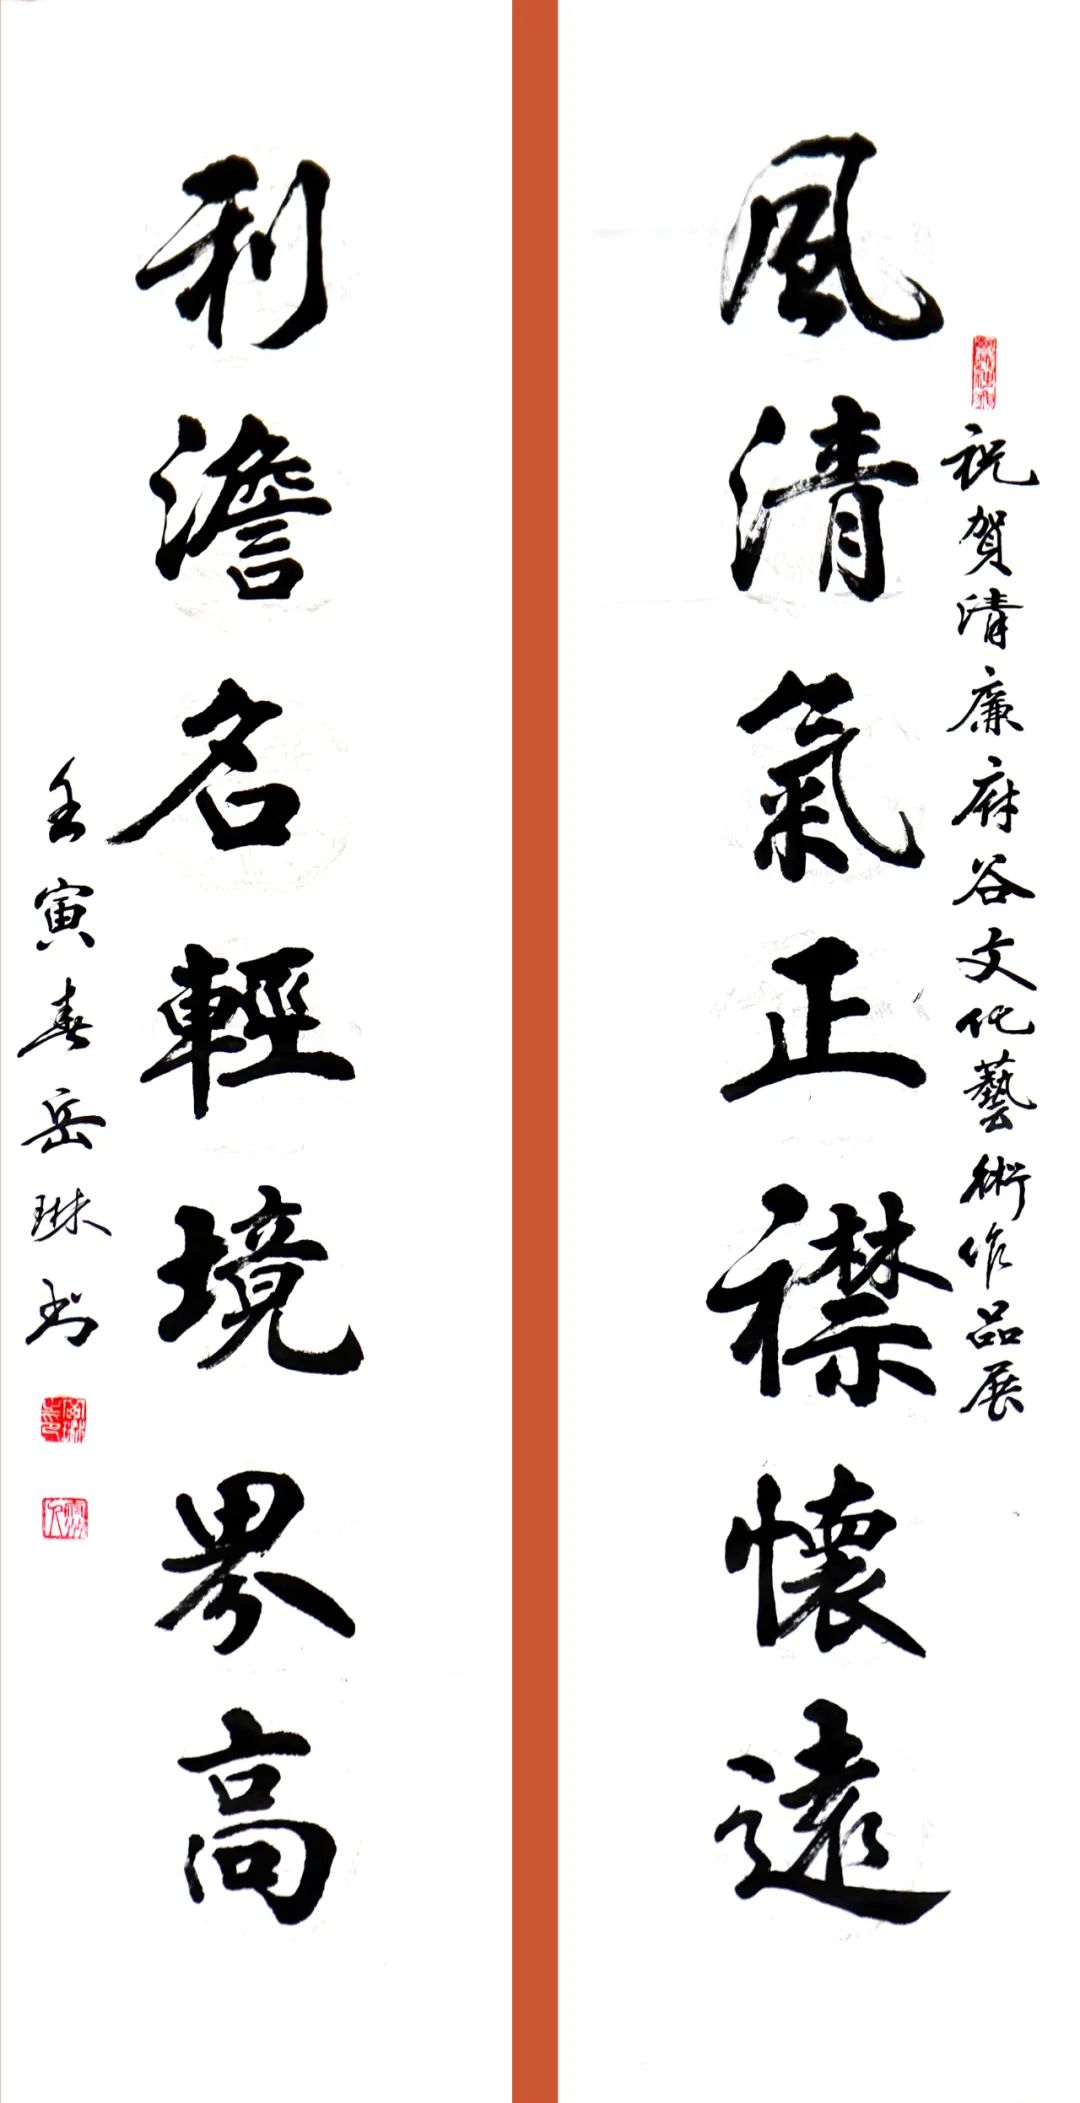 祝賀清廉麻谷文化藝術作品展
風清氣正襟懷遠
利澹名輕境界高
壬寅春岳琳书